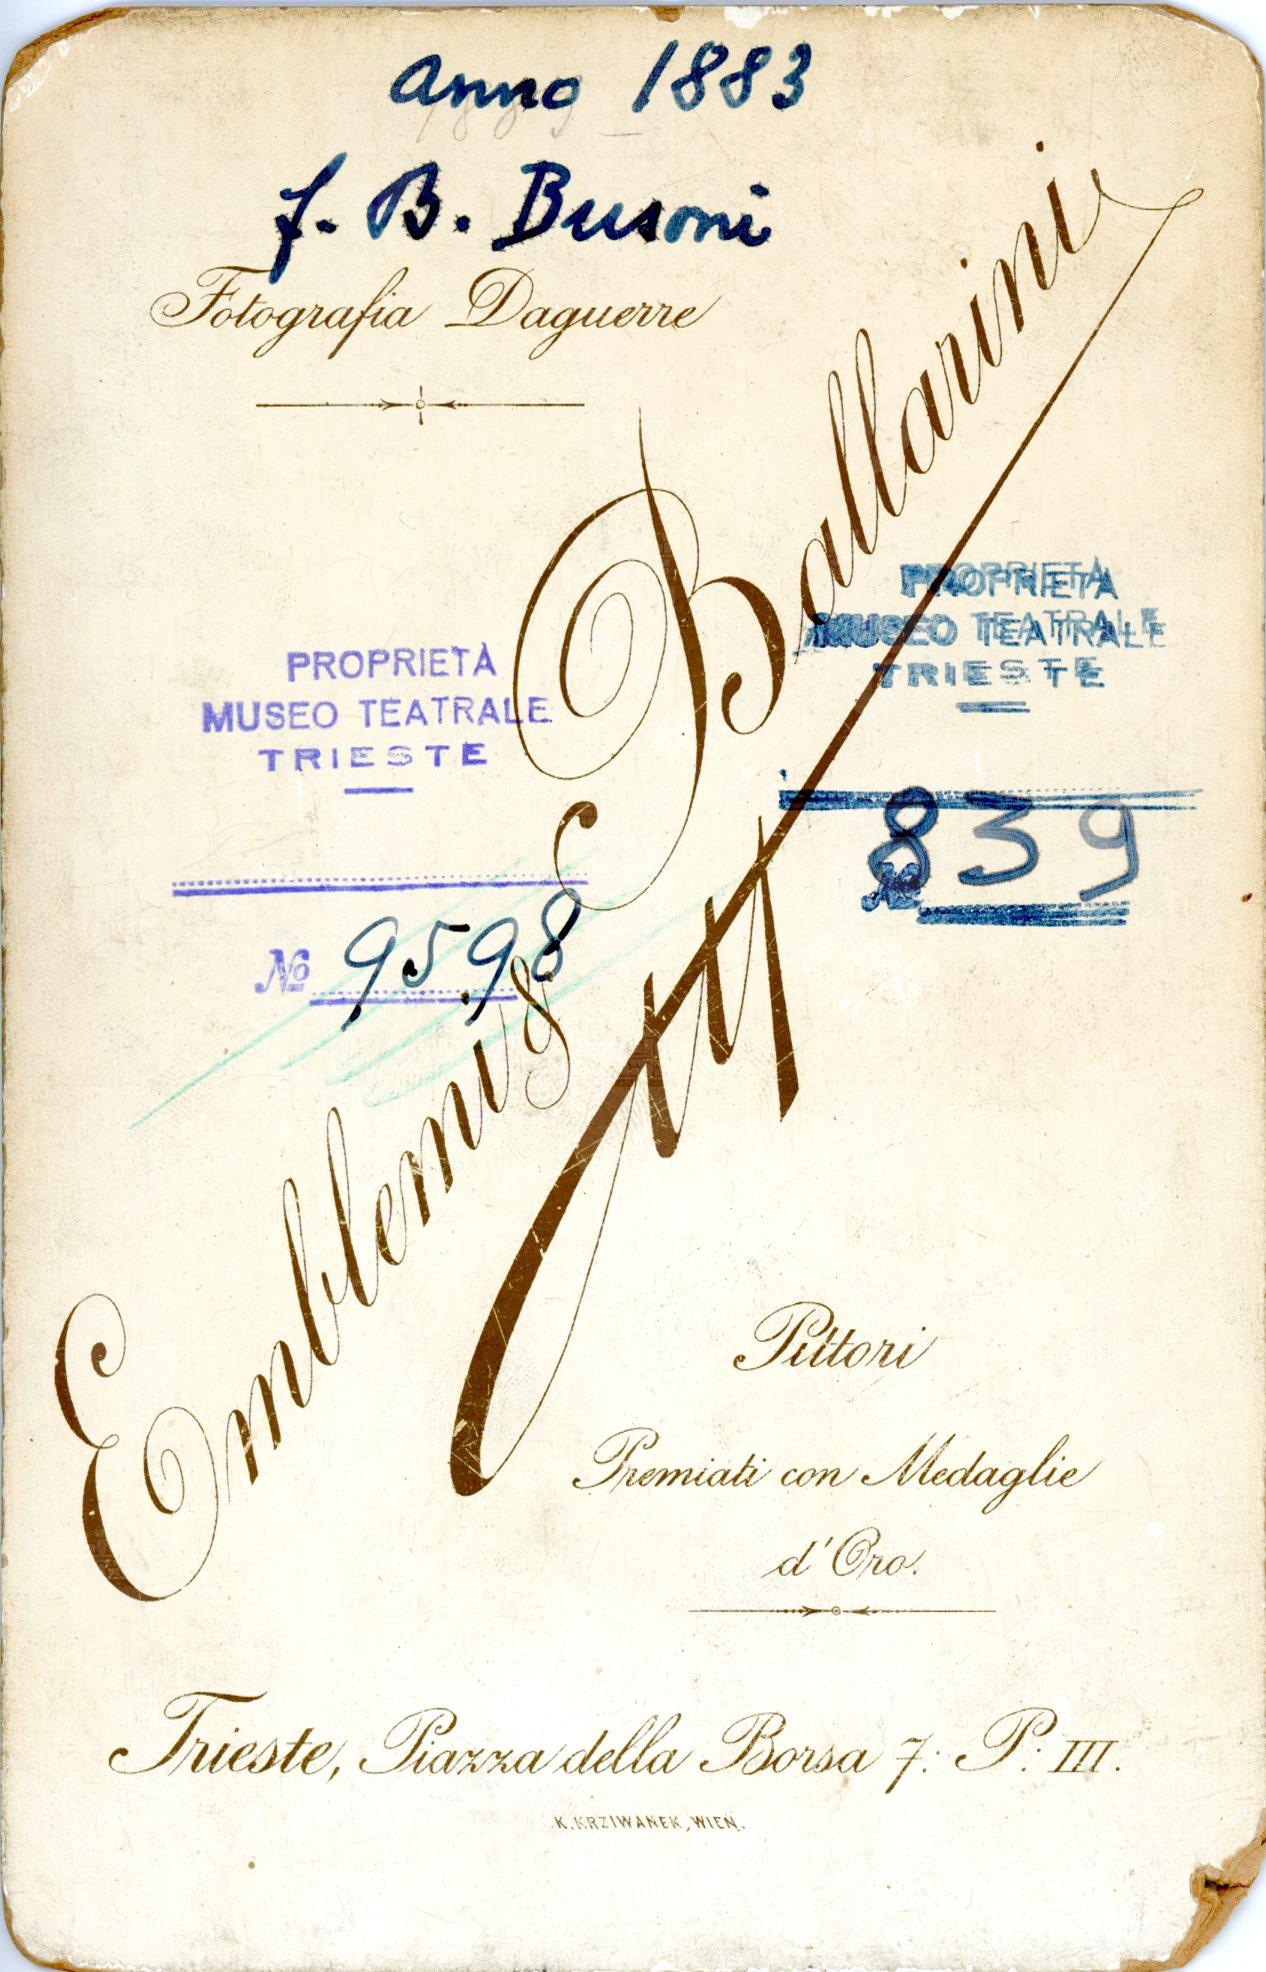 anno 1883
F. B. Busoni
Fotografia Daguerre
Emblemi & Ballarini
PROPRIETÀ
MUSEO TEATRALE
TRIESTE
Nº 9598
PROPRIETÀ
MUSEO TEATRALE
TRIESTE
Nº 839
Pittori
Premiati con Medaglie
d'Oro.
Trieste, Piazza della Borsa 7: P: III.
K. KRZIWANEK, WIEN.